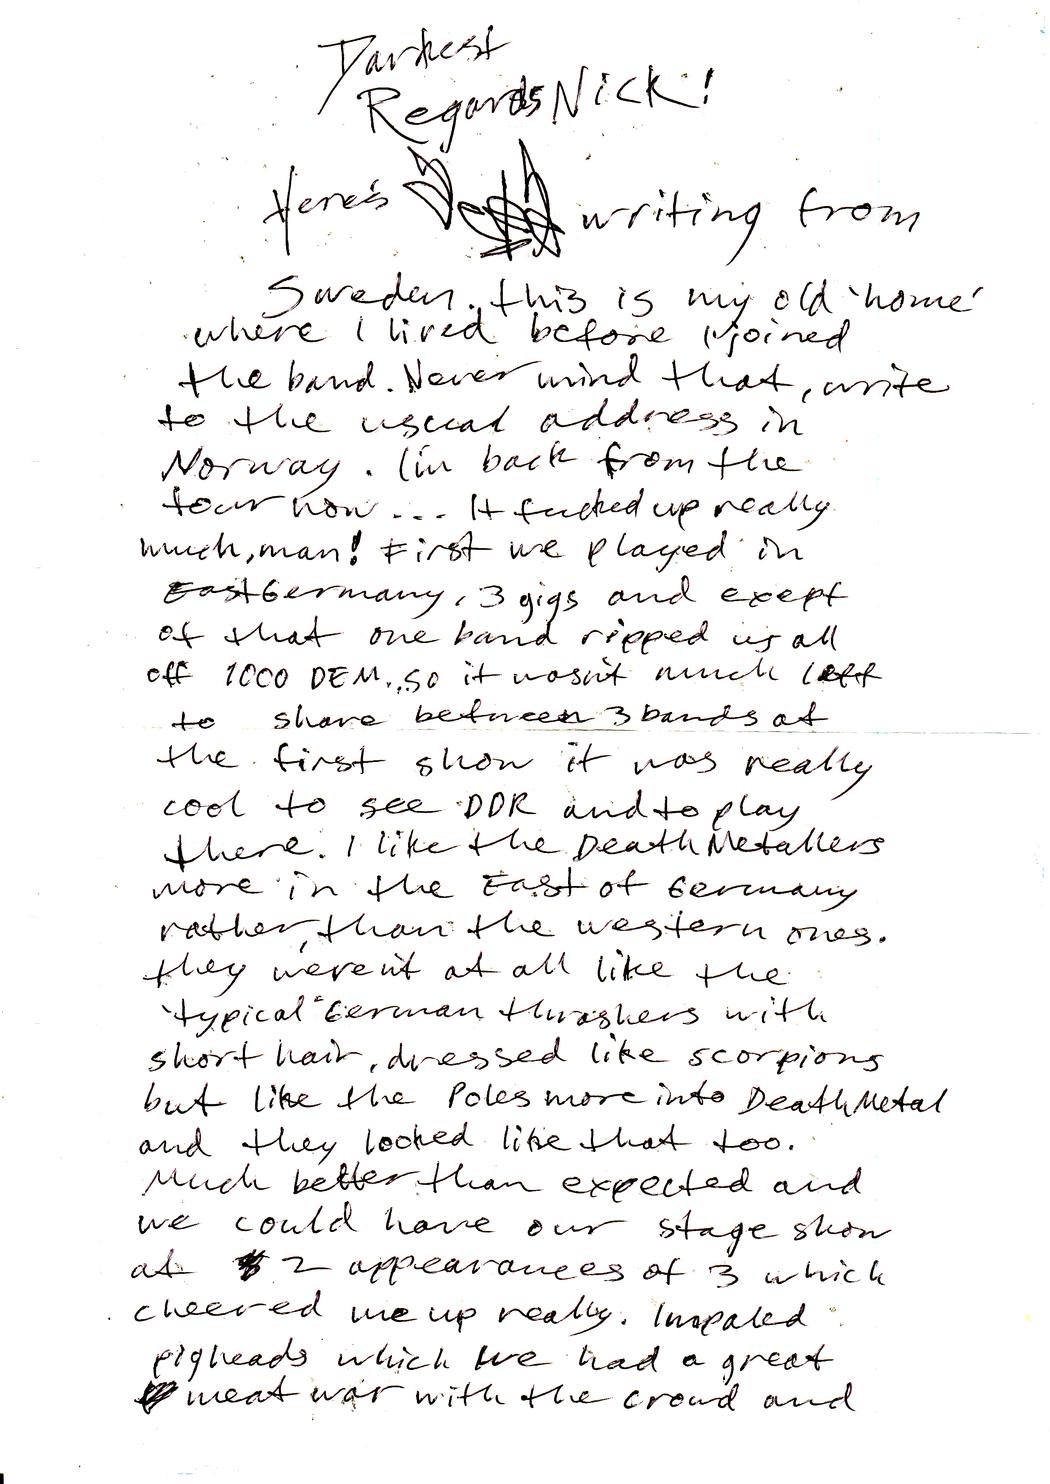 Darkest
Regards Nick!
Here's Dead writing from
Sweden. this is my old 'home'
where I lived before I joined
the band. Never mind that, write
to the usual address in
Norway. I'm back from the
tour now... It fucked up really
much, man! First we played in
East Germany, 3 gigs and exept
of that one band ripped us all
off 1000 DEM.. so it wasn't much left
to share between 3 bands at
the first show it was really
cool to see DDR and to play
there. I like the Death Metallers
more in the East of Germany
rather, than the western ones.
they weren't at all like the
'typical' German thrashers with
short hair, dressed like scorpions
but like the Poles more into Death Metal
and they looked like that too.
Much better than expected and
we could have our stage show
at 2 appearances of 3 which
cheered me up really. Impaled
pigheads which we had a great
meat war with the crowd and